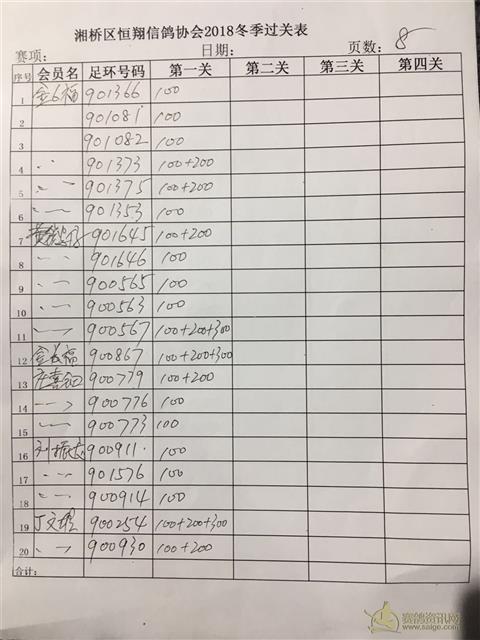 湘桥区恒翔信鸽协会2018冬季过关表
赛项: 日期: 页数: 8
序号 会员名 足环号码 第一关 第二关 第三关 第四关
1 901366 100
2 901081 100
3 901082 100
4 〃 901373 100+200
5 〃 901375 100+200
6 〃 901353 100
7 901645 100+200
8 〃 901646 100
9 〃 900565 100
10 〃 900563 100
11 〃 900567 100+200+300
12 金长福 900867 100+200+300
13 900779 100+200
14 〃 900776 100
15 〃 900773 100
16 刘振 900911 100
17 〃 901576 100
18 〃 900914 100
19 丁文 900254 100+200+300
20 〃 900930 100+200
合计:
赛鸽资讯网
www.saige.com